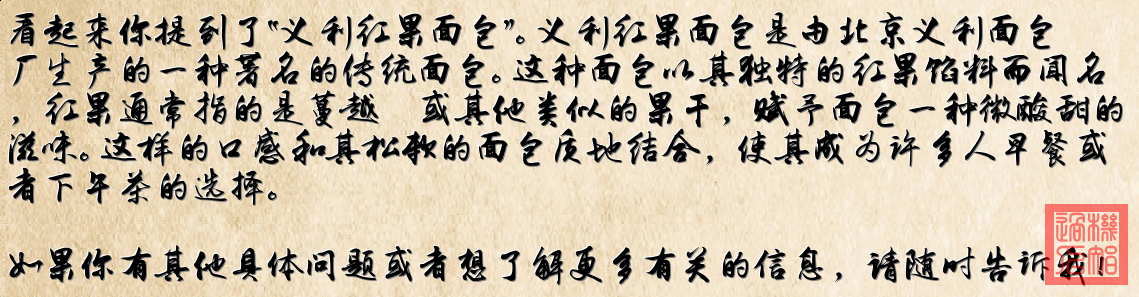 看起来你提到了“义利红果面包”。义利红果面包是由北京义利面包
厂生产的一种著名的传统面包。这种面包以其独特的红果馅料而闻名
，红果通常指的是蔓越 或其他类似的果干，赋予面包一种微酸甜的
滋味。这样的口感和其松软的面包质地结合，使其成为许多人早餐或
者下午茶的选择。
如果你有其他具体问题或者想了解更多有关的信息，请随时告诉我！